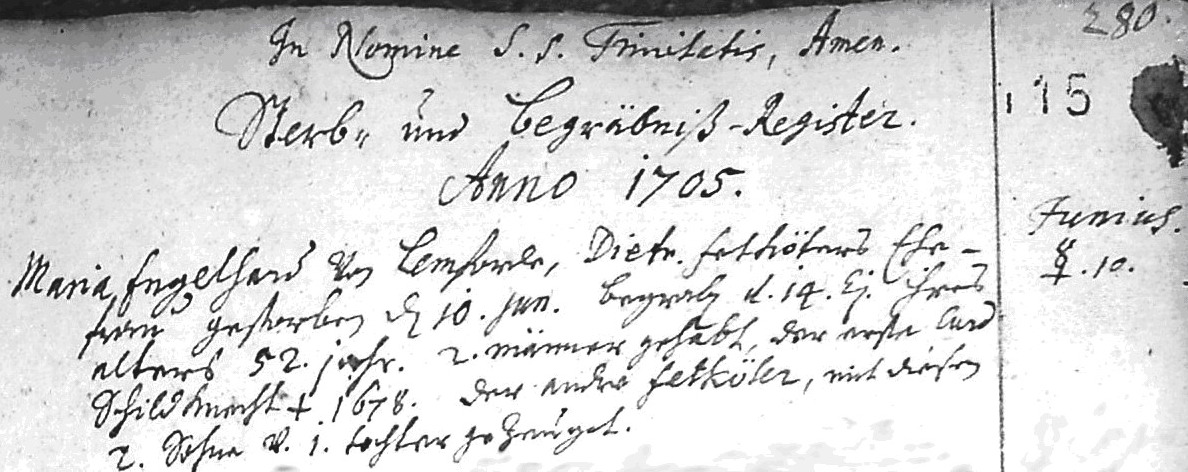 280.
In Nomine S. S. Trinitatis, Amen.
115
Sterb- und Begräbniß-Register.
Anno 1705.
Junius.
☿. 10.
Maria Engelhard von Lemforde, Dietr. Fetköters Ehe-
frau gestorben d. 10. Jun. begrab. d. 14. Ej. ihres
alters 52. jahr. 2. männer gehabt, der erste Curd
Schildknecht † 1678. der andre Fetköter, mit diesen
2. Söhne v. 1. tochter gezeuget.